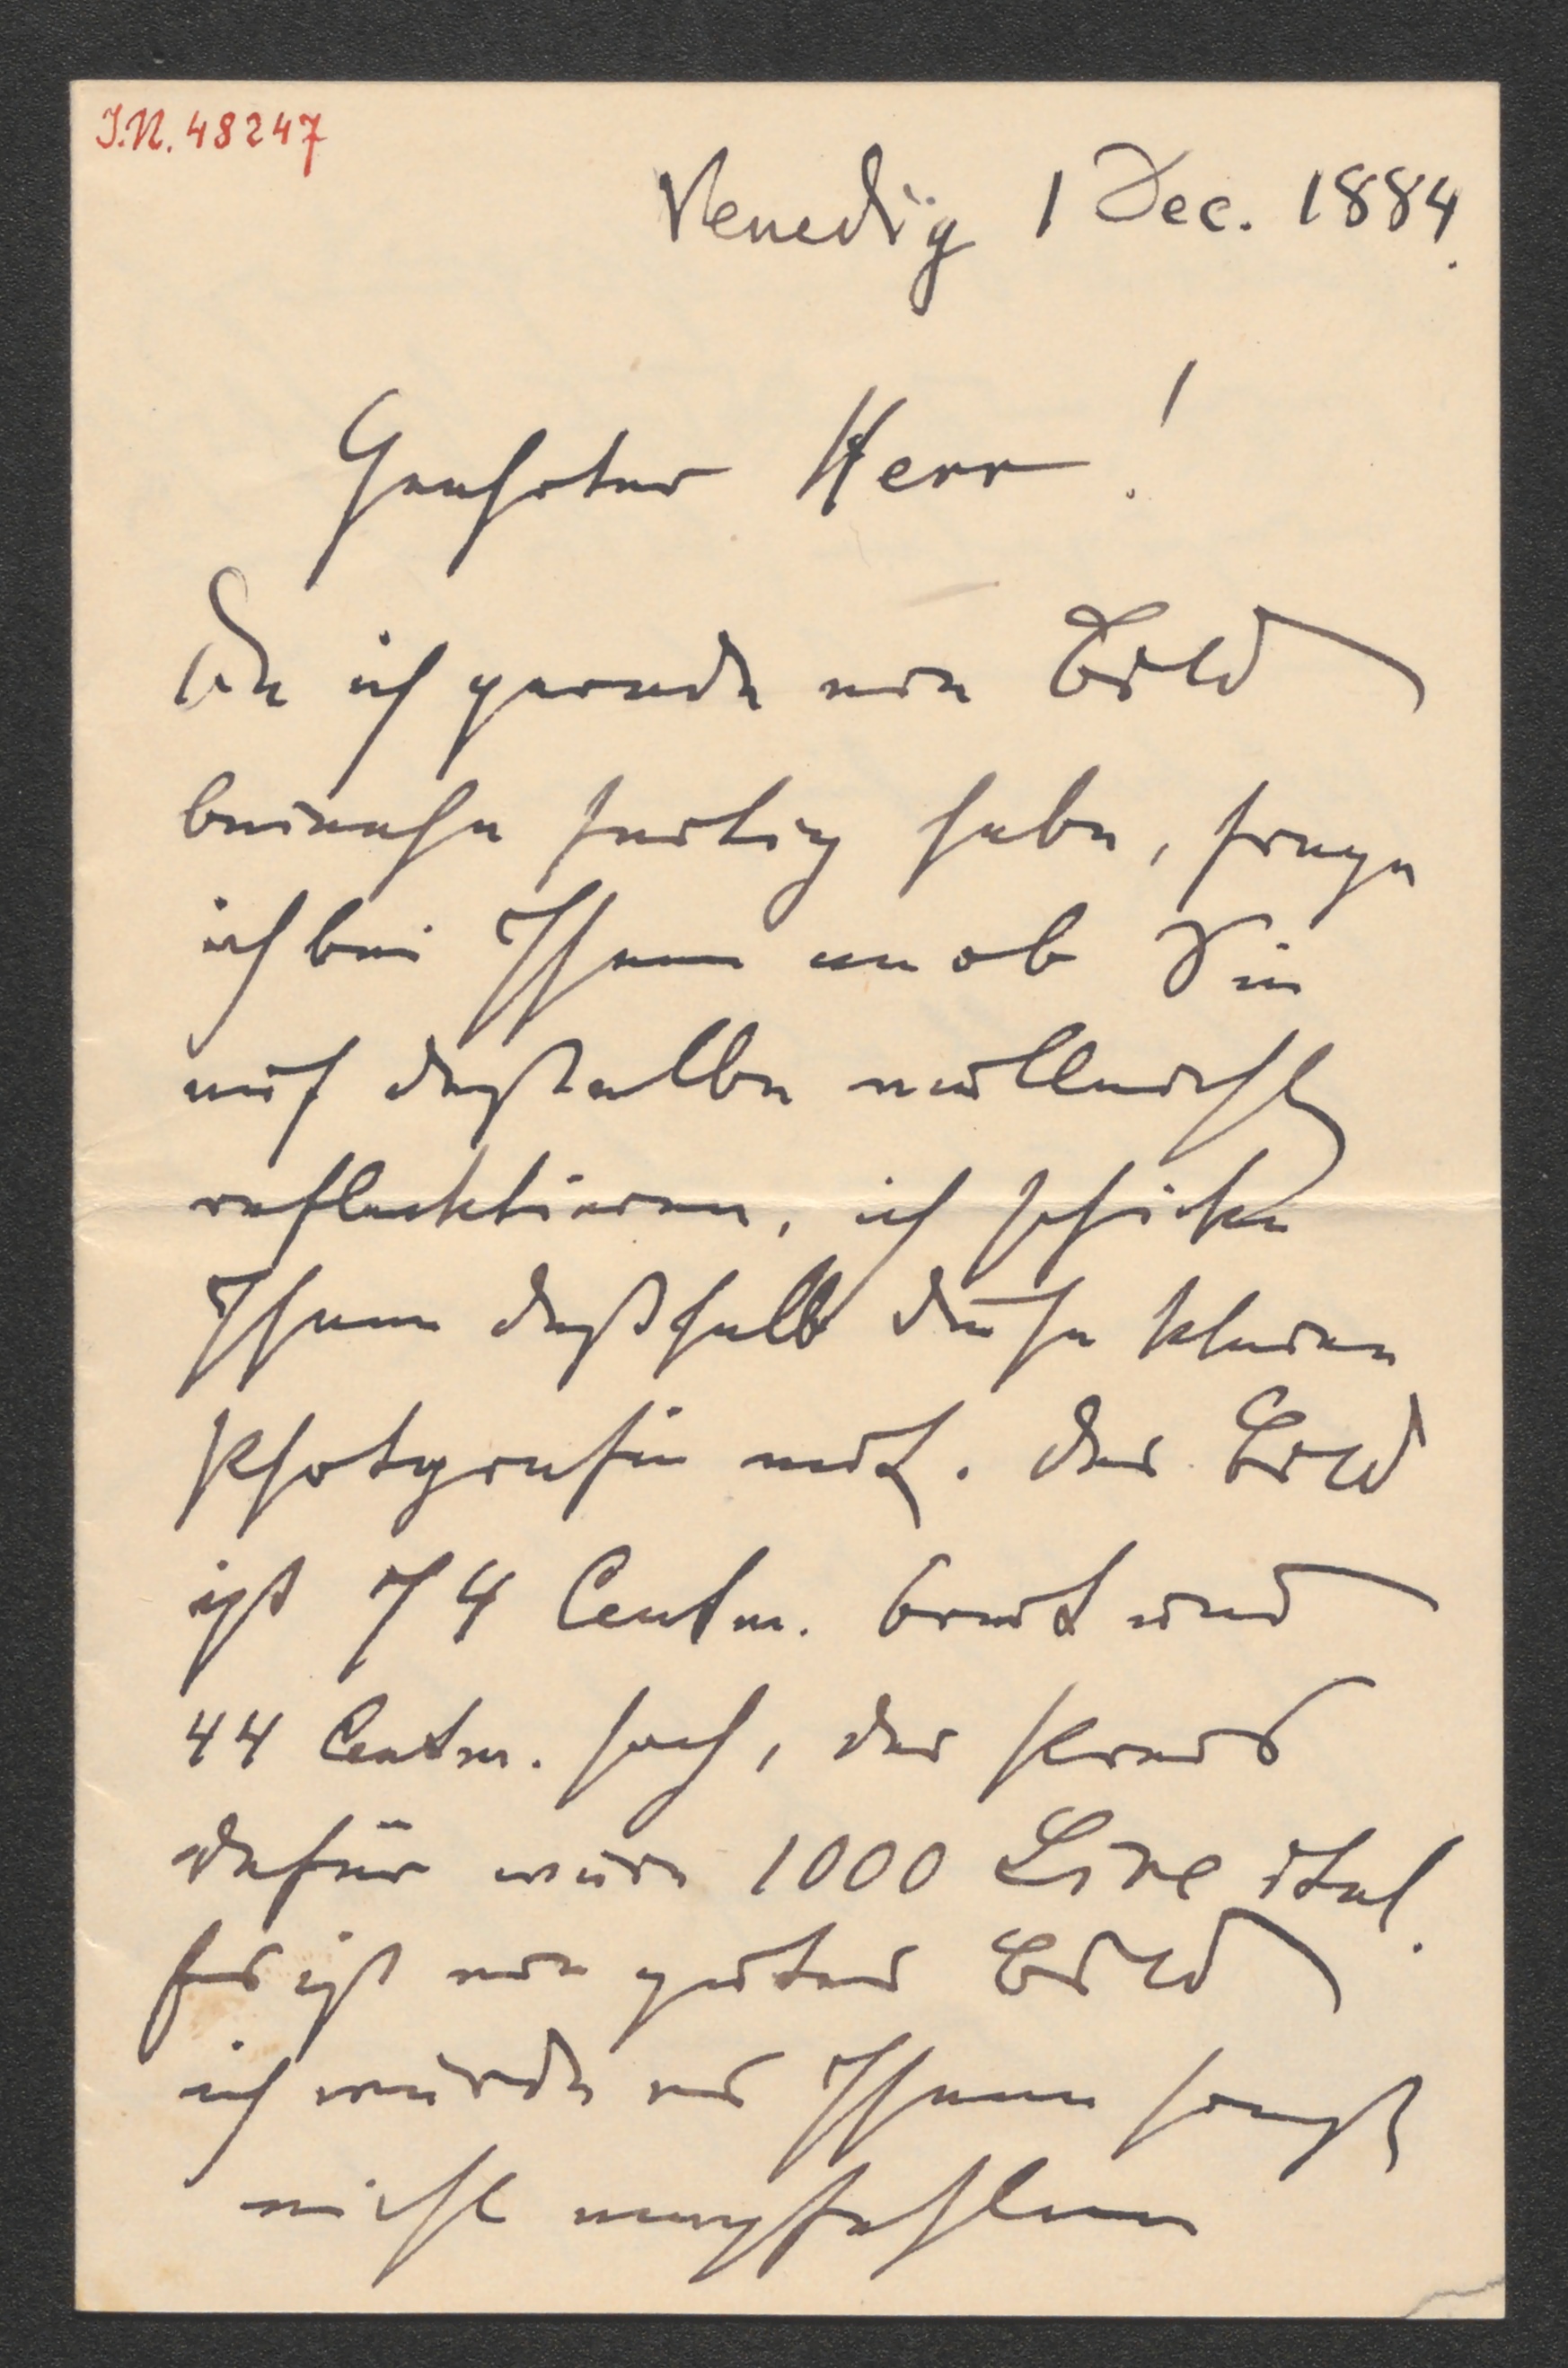 I.N. 48247
Venedig 1 Dec. 1884.
Geehrter Herr!
Da ich gerade ein Bild
beinahe fertig habe, frage
ich bei Ihnen an ob Sie
auf daßselbe vielleicht
reflecktieren, ich schicke
Ihnen deßhalb diese kleine
Photgrafie mit. Das Bild
ist 74 Centm. breit und
44 Centm. hoch, der Preis
dafür wäre 1000 Lire ital.
Es ist ein gutes Bild
ich würde es Ihnen sonst
nicht empfehlen